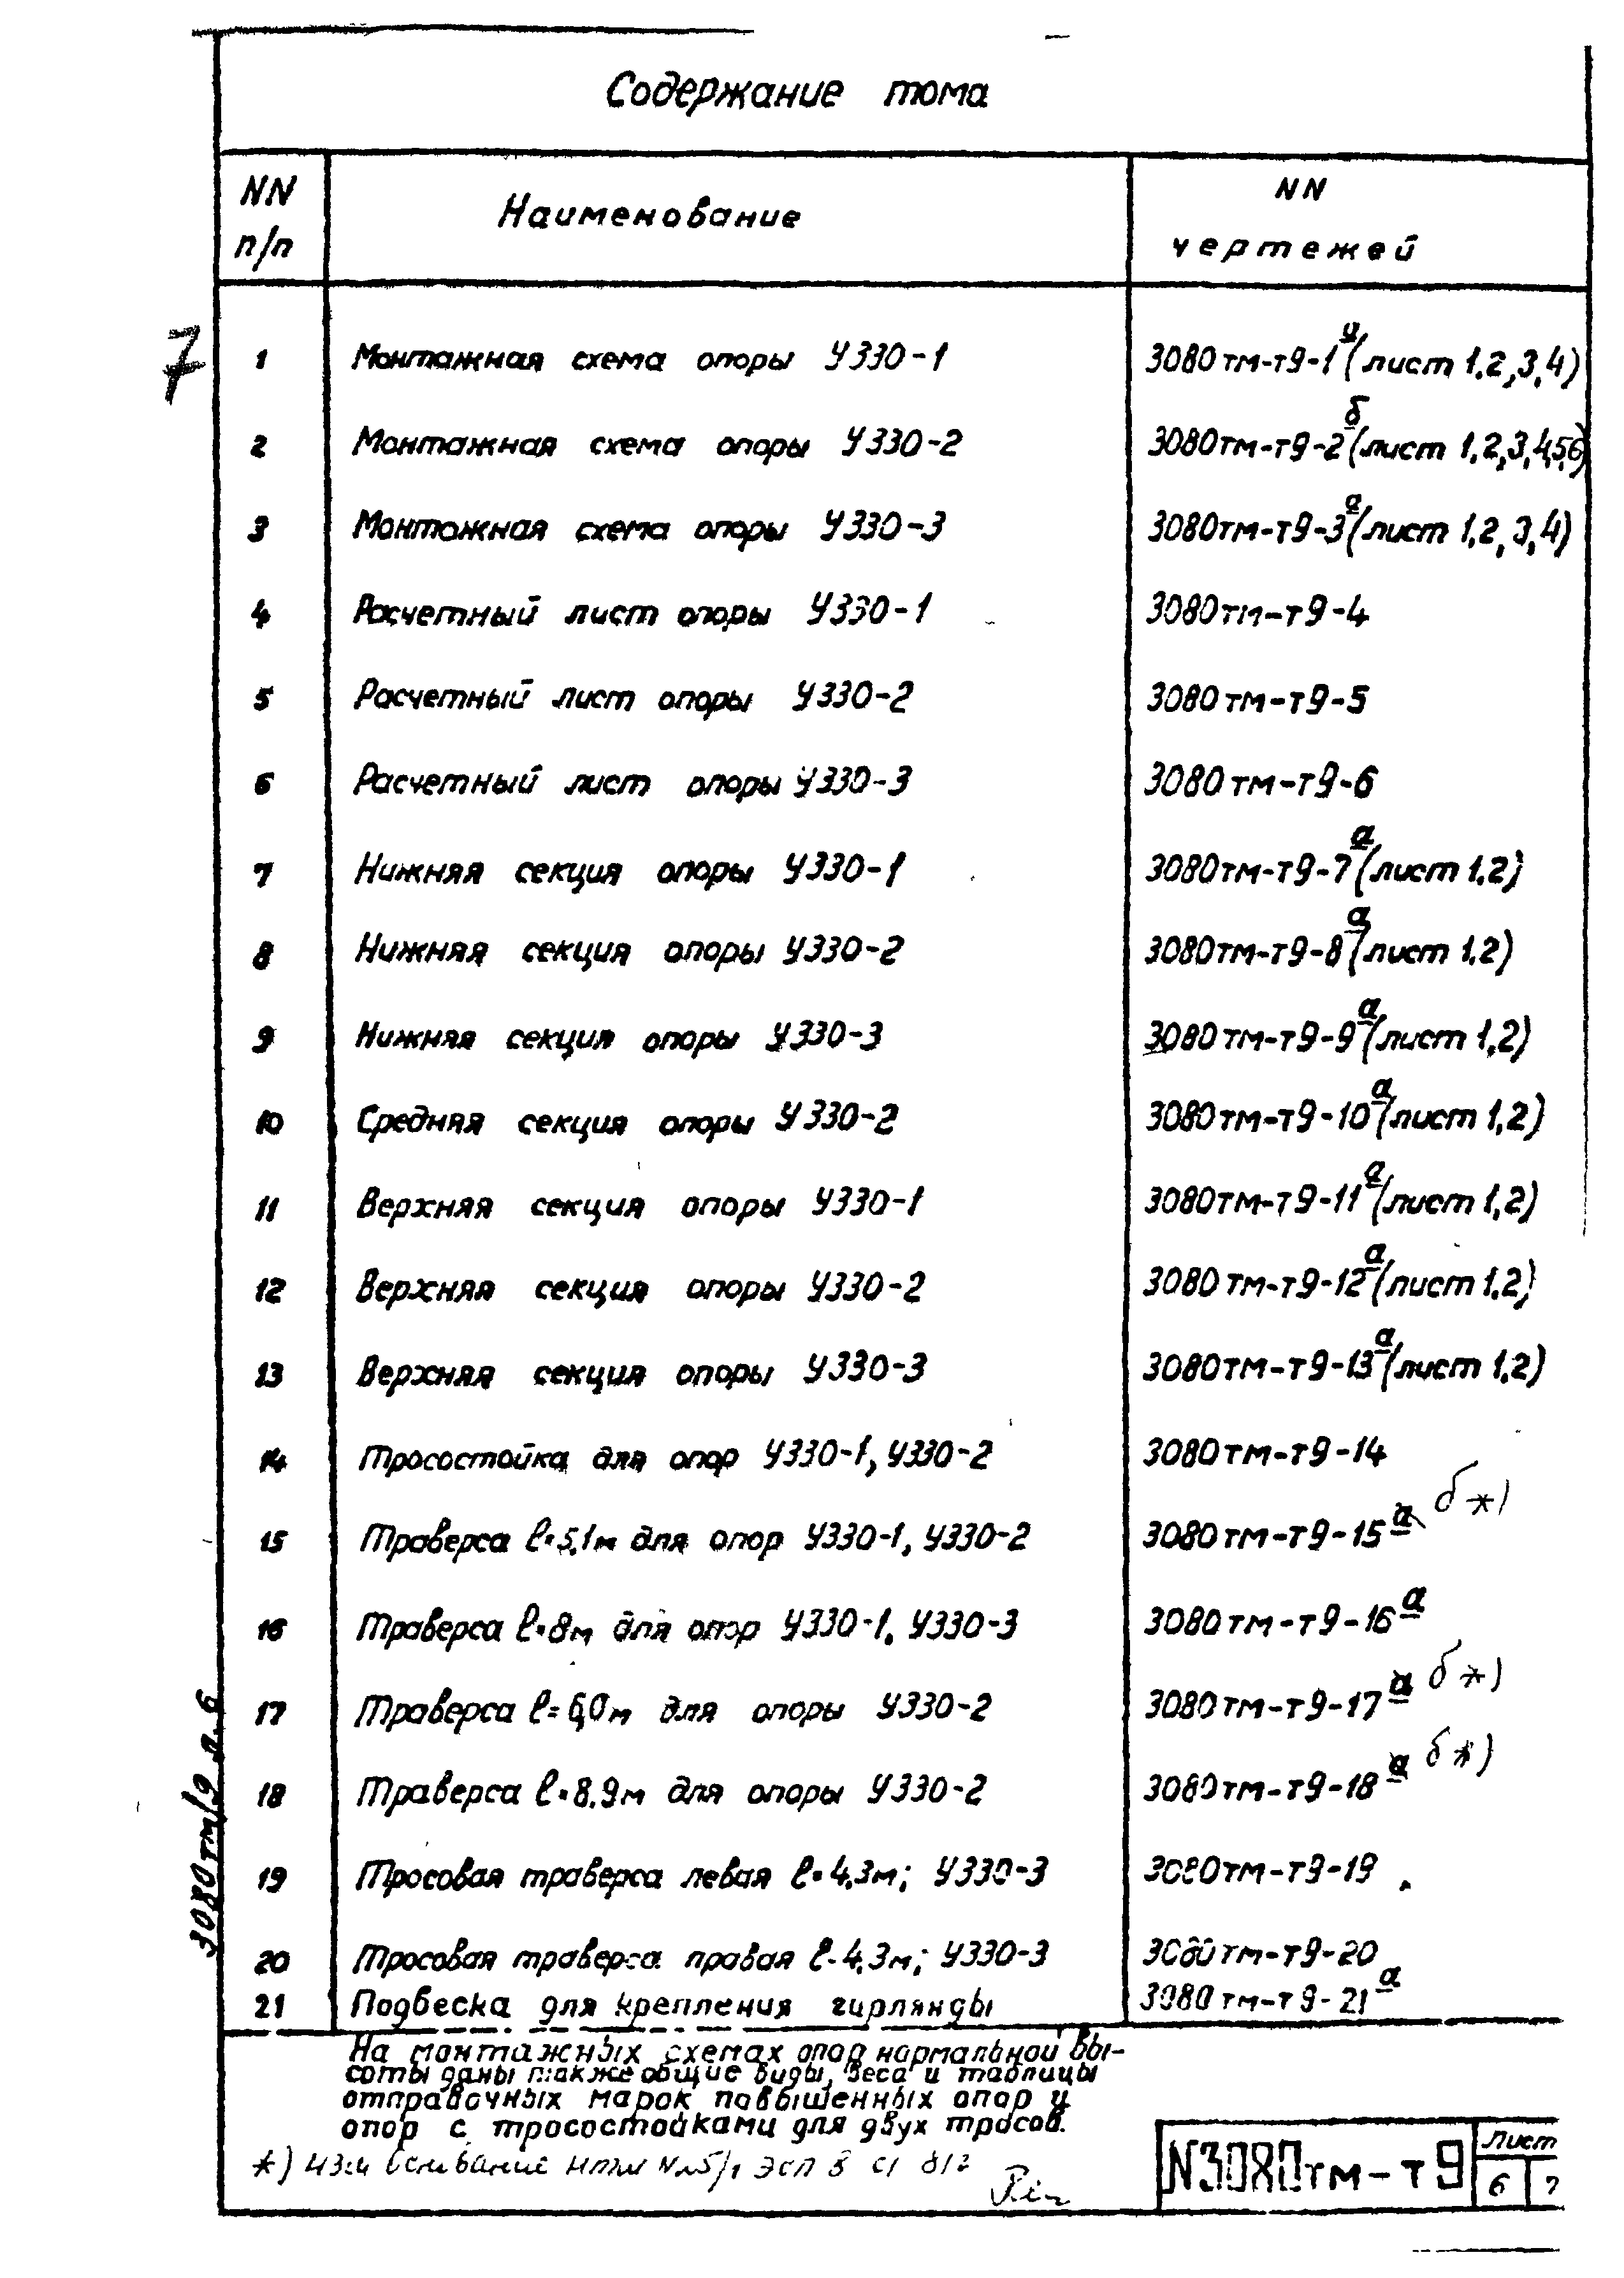 Содержание тома
NN п/п Наименование NN чертежей
7
1 Монтажная схема опоры У330-1 3080тм-т9-1а (лист 1,2,3,4)
2 Монтажная схема опоры У330-2 3080тм-т9-2б (лист 1,2,3,4,5,6)
3 Монтажная схема опоры У330-3 3080тм-т9-3а (лист 1,2,3,4)
4 Расчетный лист опоры У330-1 3080тм-т9-4
5 Расчетный лист опоры У330-2 3080тм-т9-5
6 Расчетный лист опоры У330-3 3080тм-т9-6
7 Нижняя секция опоры У330-1 3080тм-т9-7а (лист 1,2)
8 Нижняя секция опоры У330-2 3080тм-т9-8а (лист 1,2)
9 Нижняя секция опоры У330-3 3080тм-т9-9а (лист 1,2)
10 Средняя секция опоры У330-2 3080тм-т9-10а (лист 1,2)
11 Верхняя секция опоры У330-1 3080тм-т9-11а (лист 1,2)
12 Верхняя секция опоры У330-2 3080тм-т9-12а (лист 1,2)
13 Верхняя секция опоры У330-3 3080тм-т9-13а (лист 1,2)
14 Тросостойка для опор У330-1, У330-2 3080тм-т9-14
15 Траверса ℓ=5,1м для опор У330-1, У330-2 3080тм-т9-15а б*)
16 Траверса ℓ=8м для опор У330-1, У330-3 3080тм-т9-16а
17 Траверса ℓ=6,0м для опоры У330-2 3080тм-т9-17а б*)
18 Траверса ℓ=8,9м для опоры У330-2 3080тм-т9-18а б*)
19 Тросовая траверса левая ℓ=4,3м; У330-3 3080тм-т9-19
20 Тросовая траверса правая ℓ=4,3м; У330-3 3080тм-т9-20
21 Подвеска для крепления гирлянды 3080тм-т9-21а
На монтажных схемах опор нормальной вы-
соты даны также общие виды, веса и таблицы
отправочных марок повышенных опор и
опор с тросостойками для двух тросов.
*) изм
N3080тм-т9 Лист
6 7
3080тм/9 л.6